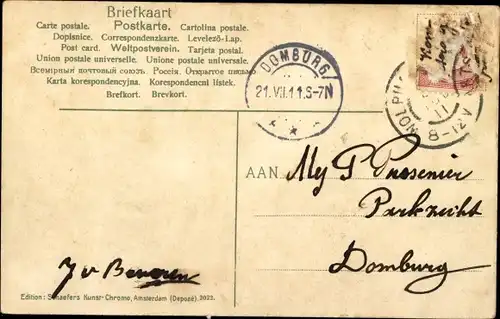 Briefkaart
Carte postale. Postkarte. Cartolina postale.
Dopisnice. Correspondenzkarte. Levelező-Lap.
Post card. Weltpostverein. Tarjeta postal.
Union postale universelle. Unione postale universale.
Всемирный почтовый союзъ. Россія. Открытое письмо
Karta korespondencyjna. Korespondenci listek.
Brefkort. Brevkort.
DOMBURG
21.VII.11.5-7N
11
8-12V
AAN
My P
Parkzicht
Domburg
J v Beveren
Edition: Schaefers Kunst-Chromo, Amsterdam (Deposé), 2022.